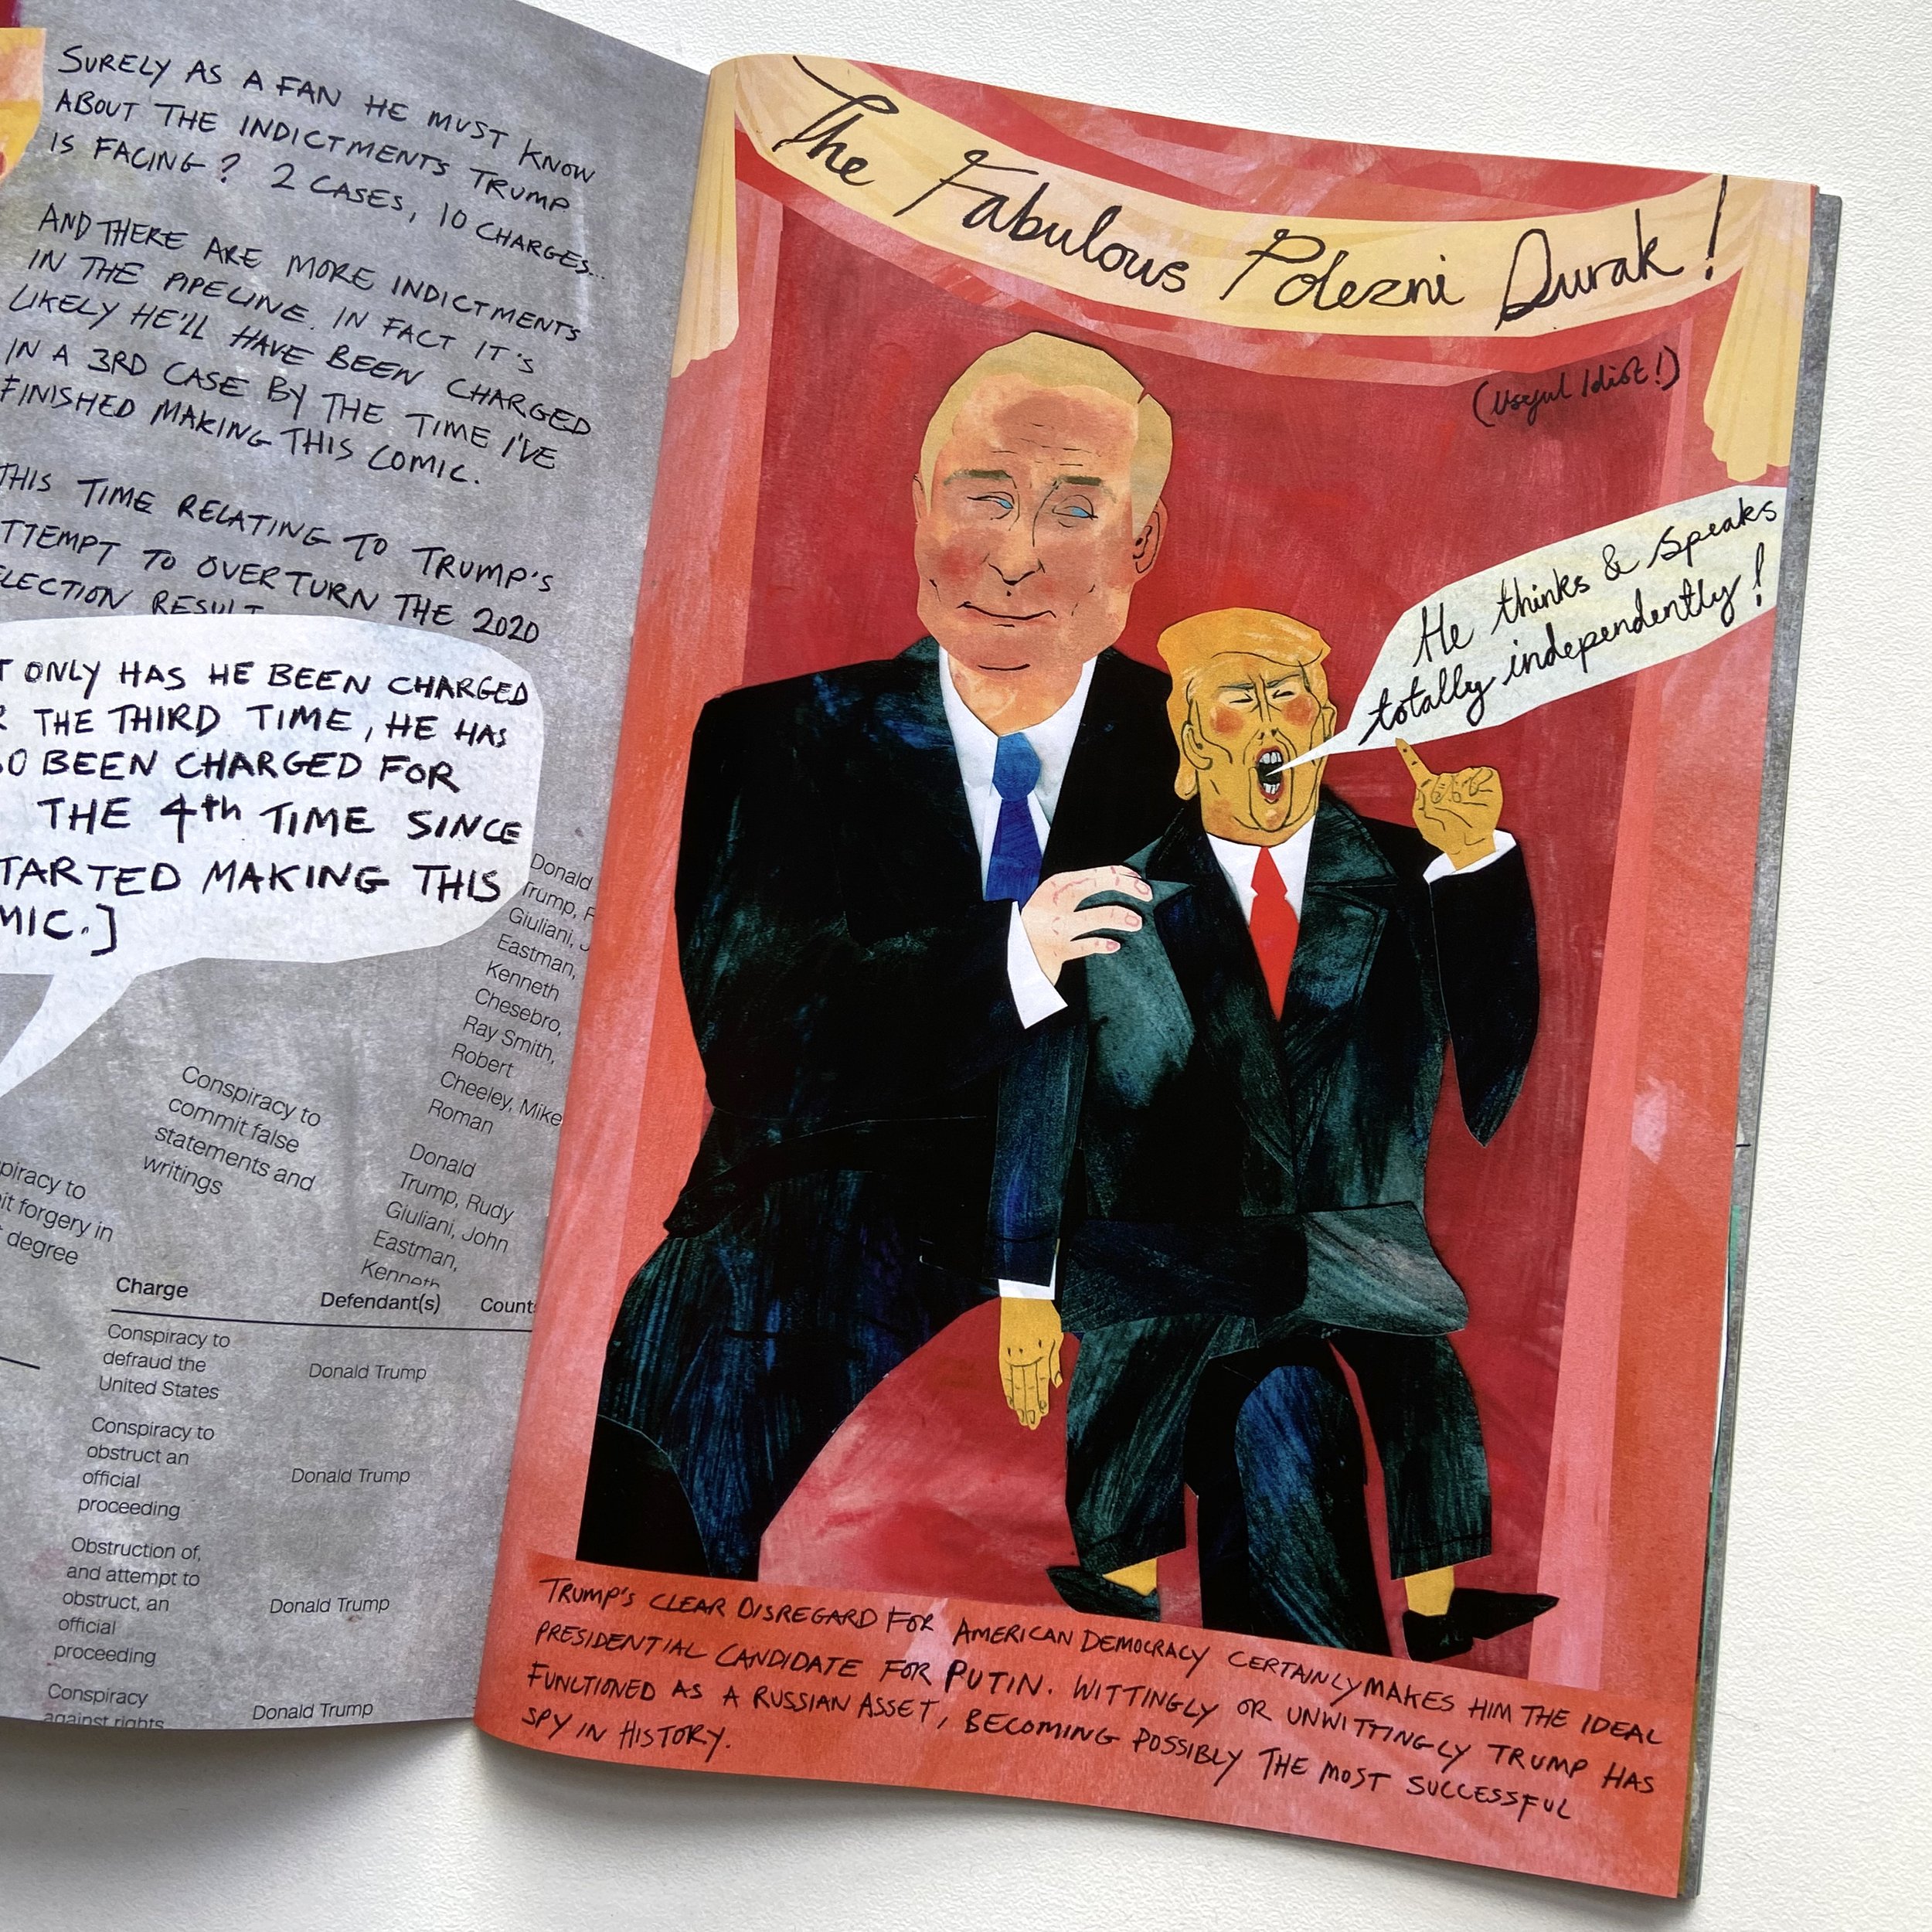 SURELY AS A FAN HE MUST KNOW
ABOUT THE INDICTMENTS TRUMP
IS FACING? 2 CASES, 10 CHARGES...
AND THERE ARE MORE INDICTMENTS
IN THE PIPELINE. IN FACT IT'S
LIKELY HE'LL HAVE BEEN CHARGED
IN A 3RD CASE BY THE TIME I'VE
FINISHED MAKING THIS COMIC.
THIS TIME RELATING TO TRUMP'S
TTEMPT TO OVERTURN THE 2020
ELECTION RESULT
T ONLY HAS HE BEEN CHARGED
R THE THIRD TIME, HE HAS
SO BEEN CHARGED FOR
THE 4th TIME SINCE
TARTED MAKING THIS
MIC.]
Donald
Trump, R
Giuliani, J
Eastman,
Kenneth
Chesebro,
Ray Smith,
Robert
Cheeley, Mike
Roman
Conspiracy to
commit false
statements and
writings
Donald
Trump, Rudy
Giuliani, John
Eastman,
Kenneth
piracy to
it forgery in
degree
Charge Defendant(s) Counts
Conspiracy to
defraud the
United States
Donald Trump
Conspiracy to
obstruct an
official
proceeding
Donald Trump
Obstruction of,
and attempt to
obstruct, an
official
proceeding
Donald Trump
Conspiracy
against rights
Donald Trump
The Fabulous Polezni Durak!
(Useful Idiot!)
He thinks & speaks
totally independently!
TRUMP'S CLEAR DISREGARD FOR AMERICAN DEMOCRACY CERTAINLY MAKES HIM THE IDEAL
PRESIDENTIAL CANDIDATE FOR PUTIN. WITTINGLY OR UNWITTINGLY TRUMP HAS
FUNCTIONED AS A RUSSIAN ASSET, BECOMING POSSIBLY THE MOST SUCCESSFUL
SPY IN HISTORY.